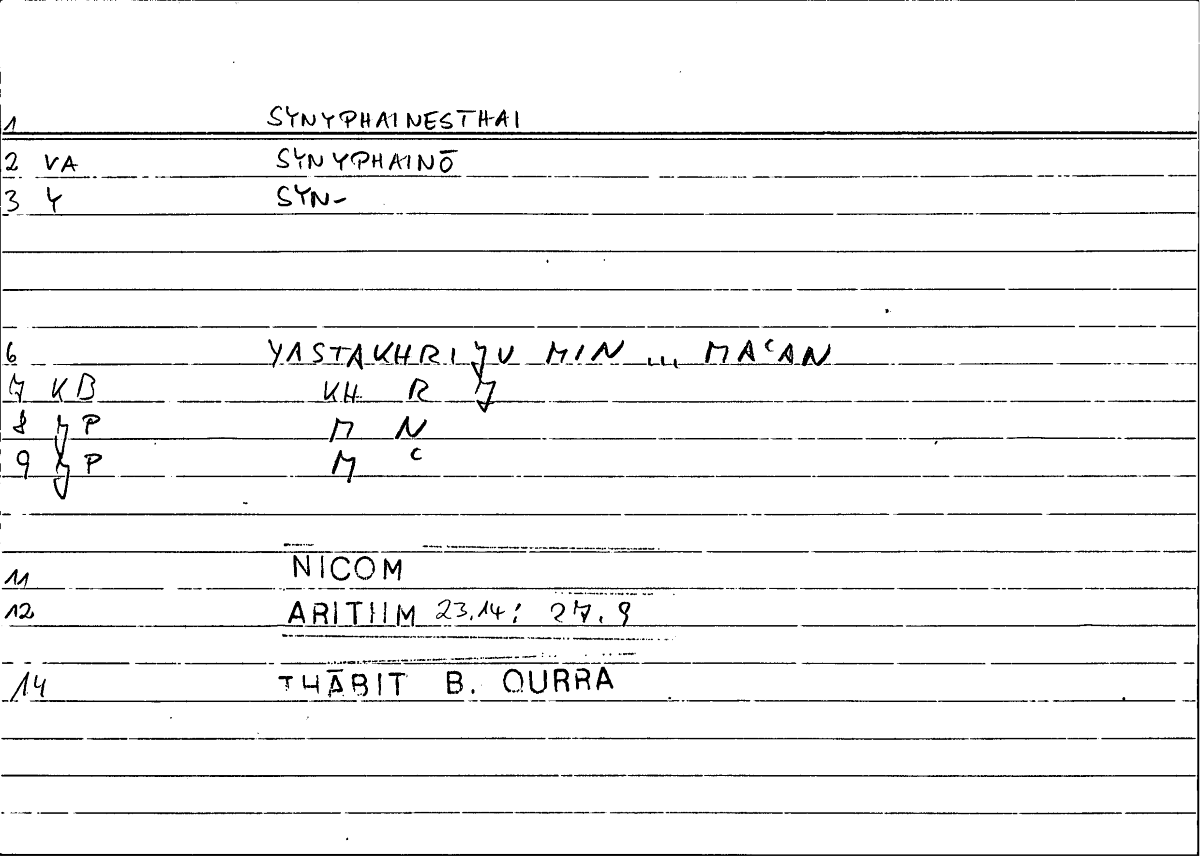 1 SYNYPHAINESTHAI
2 VA SYNYPHAINŌ
3 Y SYN-
6 YASTAKHRIJU MIN ... MAᶜAN
7 KB KH R J
8 JP M N
9 JP M ᶜ
11 NICOM
12 ARITHM 23.14; 27.9
14 THĀBIT B. QURRA